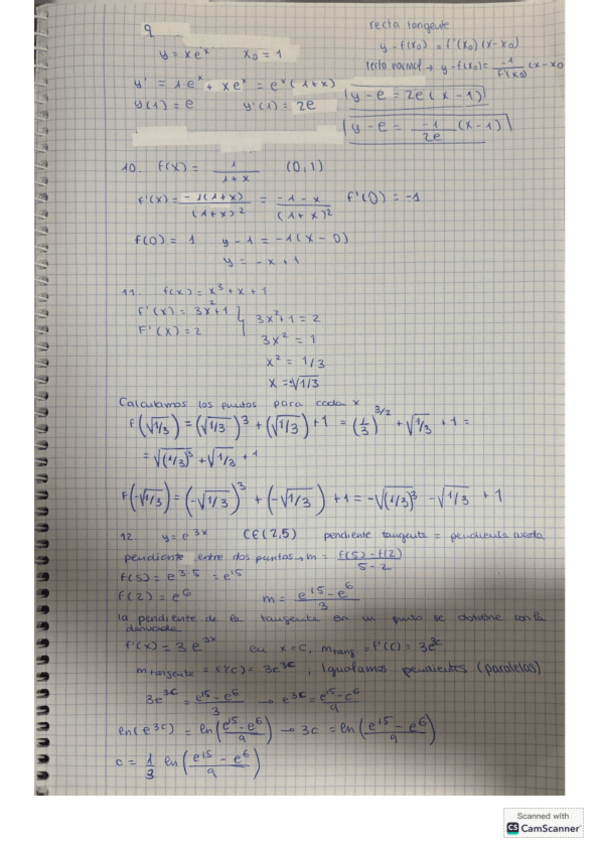 9
y = xeˣ    x₀ = 1
recta tangente
y - f(x₀) = f'(x₀)(x-x₀)
recta normal → y-f(x₀) = -1/f'(x₀) (x-x₀
y' = 1·eˣ + xeˣ = eˣ(1+x)
y(1) = e    y'(1) = 2e
y - e = 2e(x-1)
y - e = -1/2e (x-1)
10. f(x) = 1/(1+x)    (0,1)
f'(x) = -1(1+x)/(1+x)² = (-1-x)/(1+x)²    f'(0) = -1
f(0) = 1    y - 1 = -1(x - 0)
y = -x + 1
11. f(x) = x³ + x + 1
f'(x) = 3x²+1    3x²+1 = 2
f'(x) = 2    3x² = 1
x² = 1/3
x = ±√1/3
Calculamos los puntos para cada x
f(√1/3) = (√1/3)³ + (√1/3) + 1 = (1/3)^3/2 + √1/3 + 1 =
= √(1/3)³ + √1/3 + 1
f(-√1/3) = (-√1/3)³ + (-√1/3) + 1 = -√(1/3)³ - √1/3 + 1
12. y = e³ˣ    C∈(2,5)    pendiente tangente = pendiente
pendiente entre dos puntos → m = (f(5) - f(2))/(5-2)
f(5) = e³·⁵ = e¹⁵
f(2) = e⁶    m = (e¹⁵ - e⁶)/3
la pendiente de la tangente en un punto se obtiene con la
derivada
f'(x) = 3e³ˣ    en x=c, m tang = f'(c) = 3e³ᶜ
m tangente = f'(c) = 3e³ᶜ, Igualamos pendientes (paralelas)
3e³ᶜ = (e¹⁵ - e⁶)/3 → e³ᶜ = (e¹⁵ - e⁶)/9
ln(e³ᶜ) = ln((e¹⁵ - e⁶)/9) → 3c = ln((e¹⁵ - e⁶)/9)
c = 1/3 ln((e¹⁵ - e⁶)/9)
Scanned with
CS CamScanner